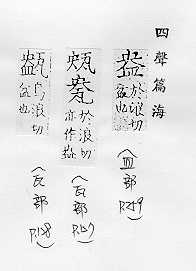 四聲篇海
於浪切
盆也
(皿部 P.249)
於浪切
亦作盎
(瓦部 P.157)
烏浪切
盆也
(瓦部 P.158)